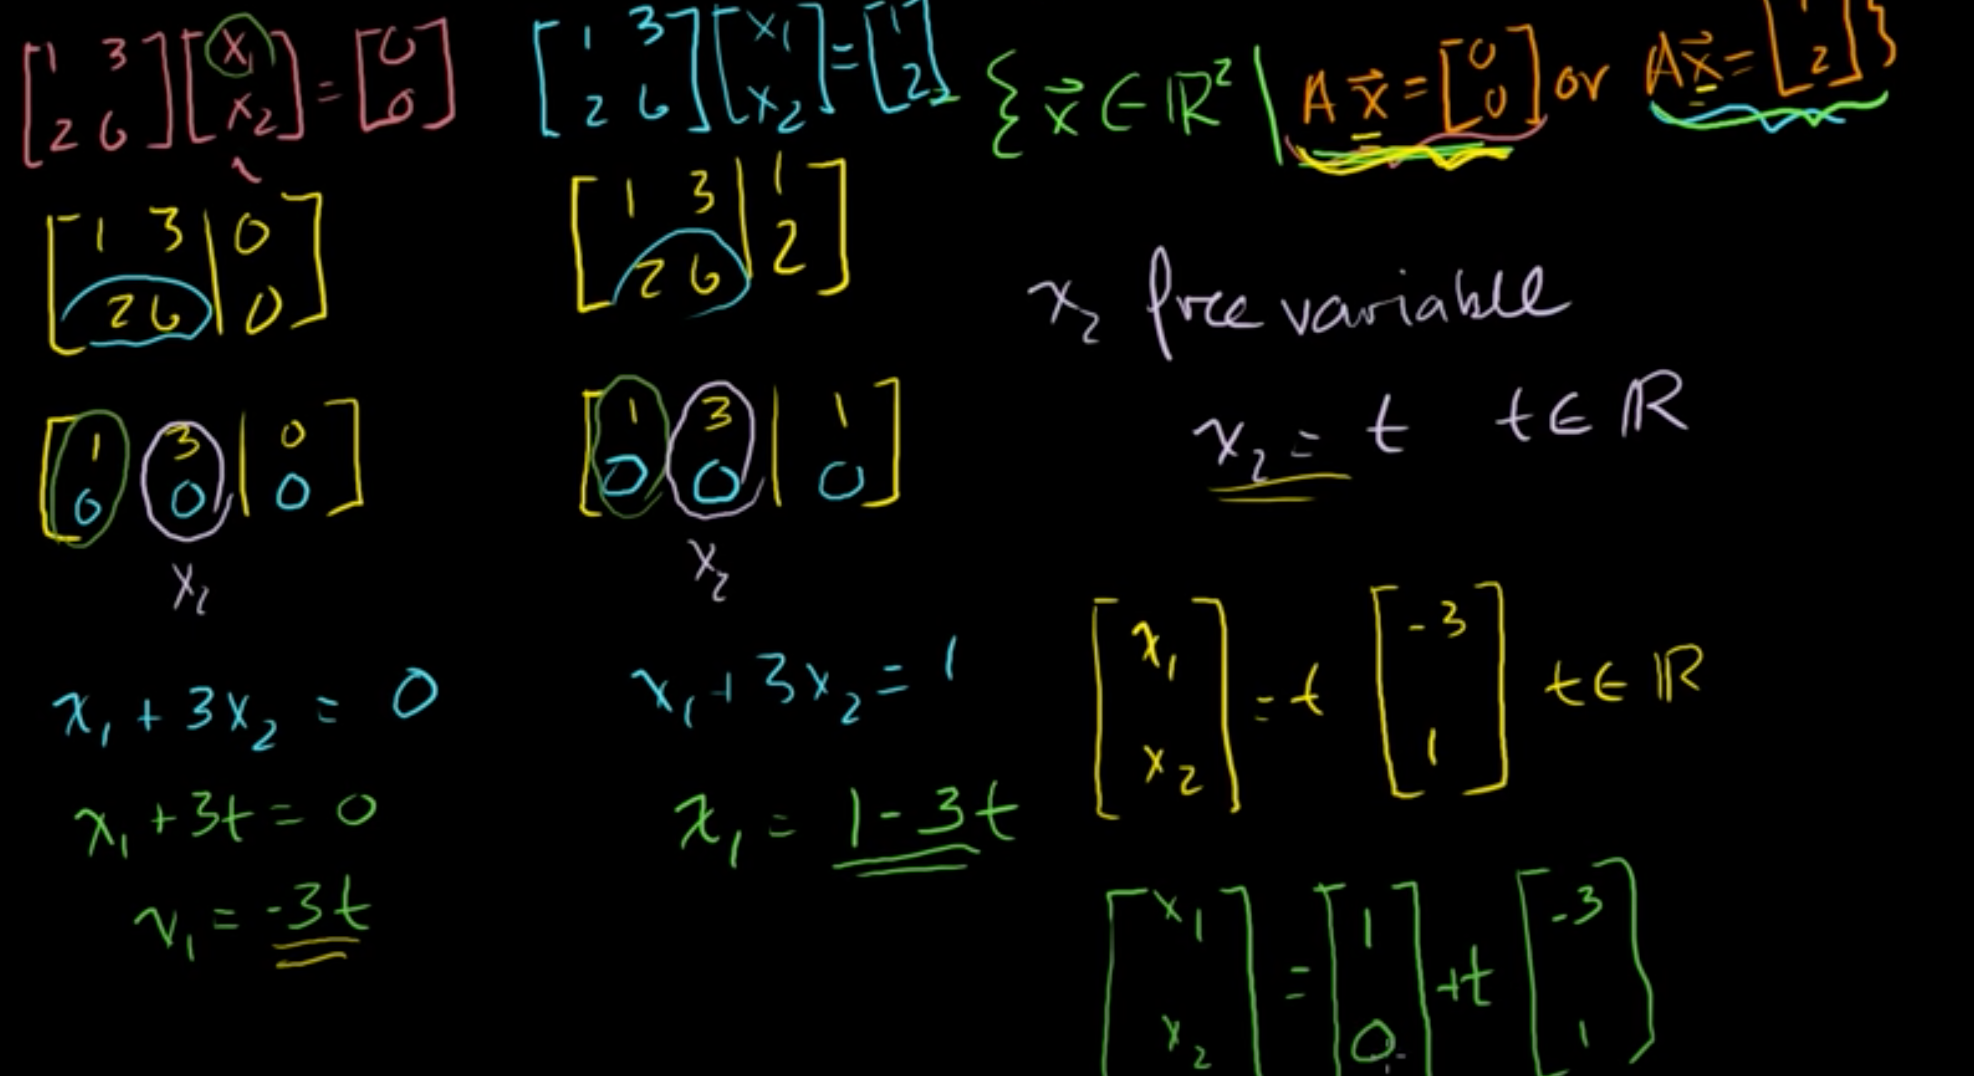 [1 3; 2 6] [x₁; x₂] = [0; 0]
[1 3; 2 6] [x₁; x₂] = [1; 2]
{ x⃗ ∈ ℝ² | A x⃗ = [0; 0] or A x⃗ = [1; 2] }
[1 3 | 0; 2 6 | 0]
[1 3 | 1; 2 6 | 2]
x₂ free variable
[1 3 | 0; 0 0 | 0]
[1 3 | 1; 0 0 | 0]
x₂ = t t ∈ ℝ
x₂
x₂
x₁ + 3x₂ = 0
x₁ + 3x₂ = 1
x₁ + 3t = 0
x₁ = 1 - 3t
x₁ = -3t
[x₁; x₂] = t [-3; 1] t ∈ ℝ
[x₁; x₂] = [1; 0] + t [-3; 1]